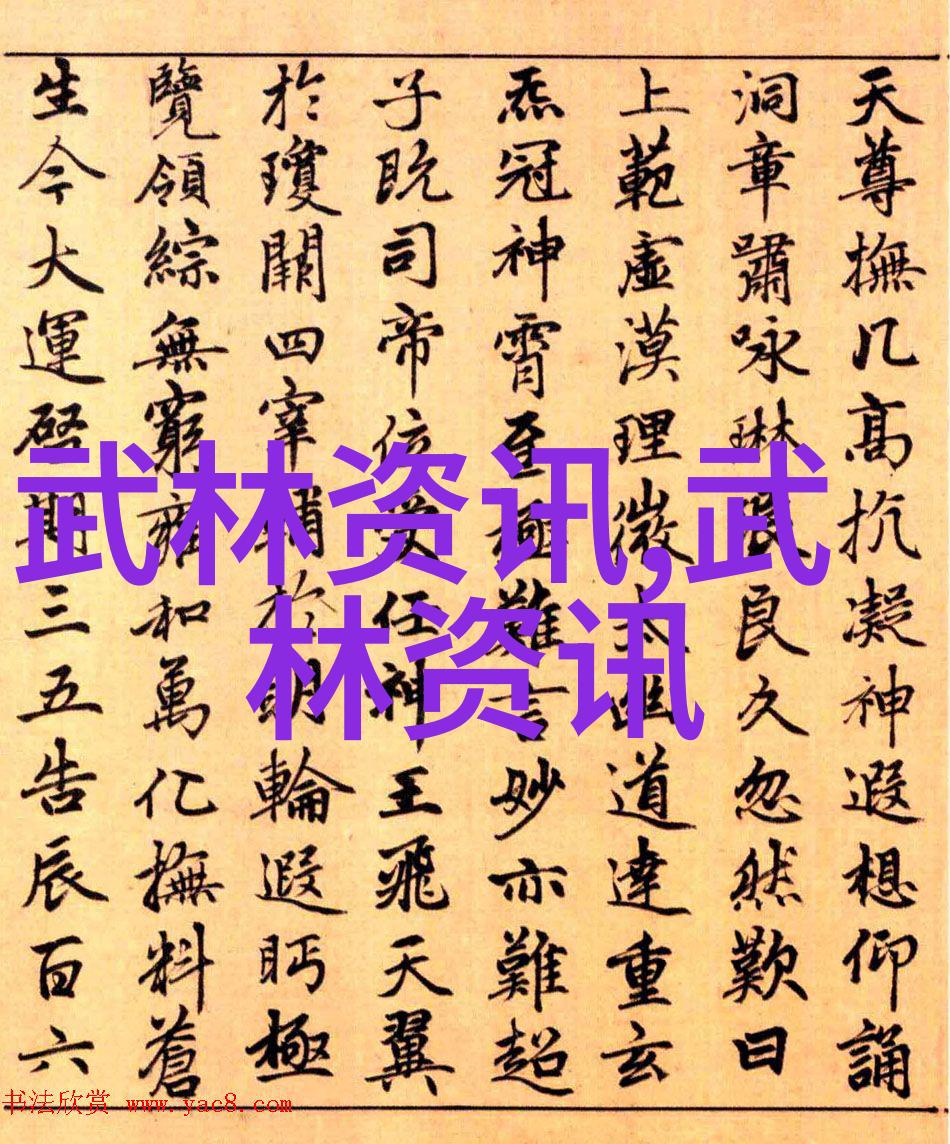 天尊撫几高抗凝神遐想仰誦
洞章嘯咏琳 良久忽然歎曰
上範虛漠理微太幽道達重玄
炁冠神霄至極難言妙亦難超
子既司帝位受任神王飛天翼
於瓊闕四宰輔於明輪遐眄極
覽領綜無窮雍和萬化撫料蒼
生今大運啓期三五告辰百六
武林资讯,武
林资讯
书法欣赏 www.yac8.com